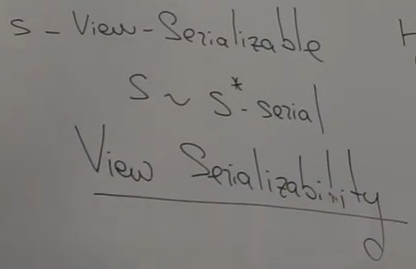 S - View-Serializable
S ~ S*-serial
View Serializability